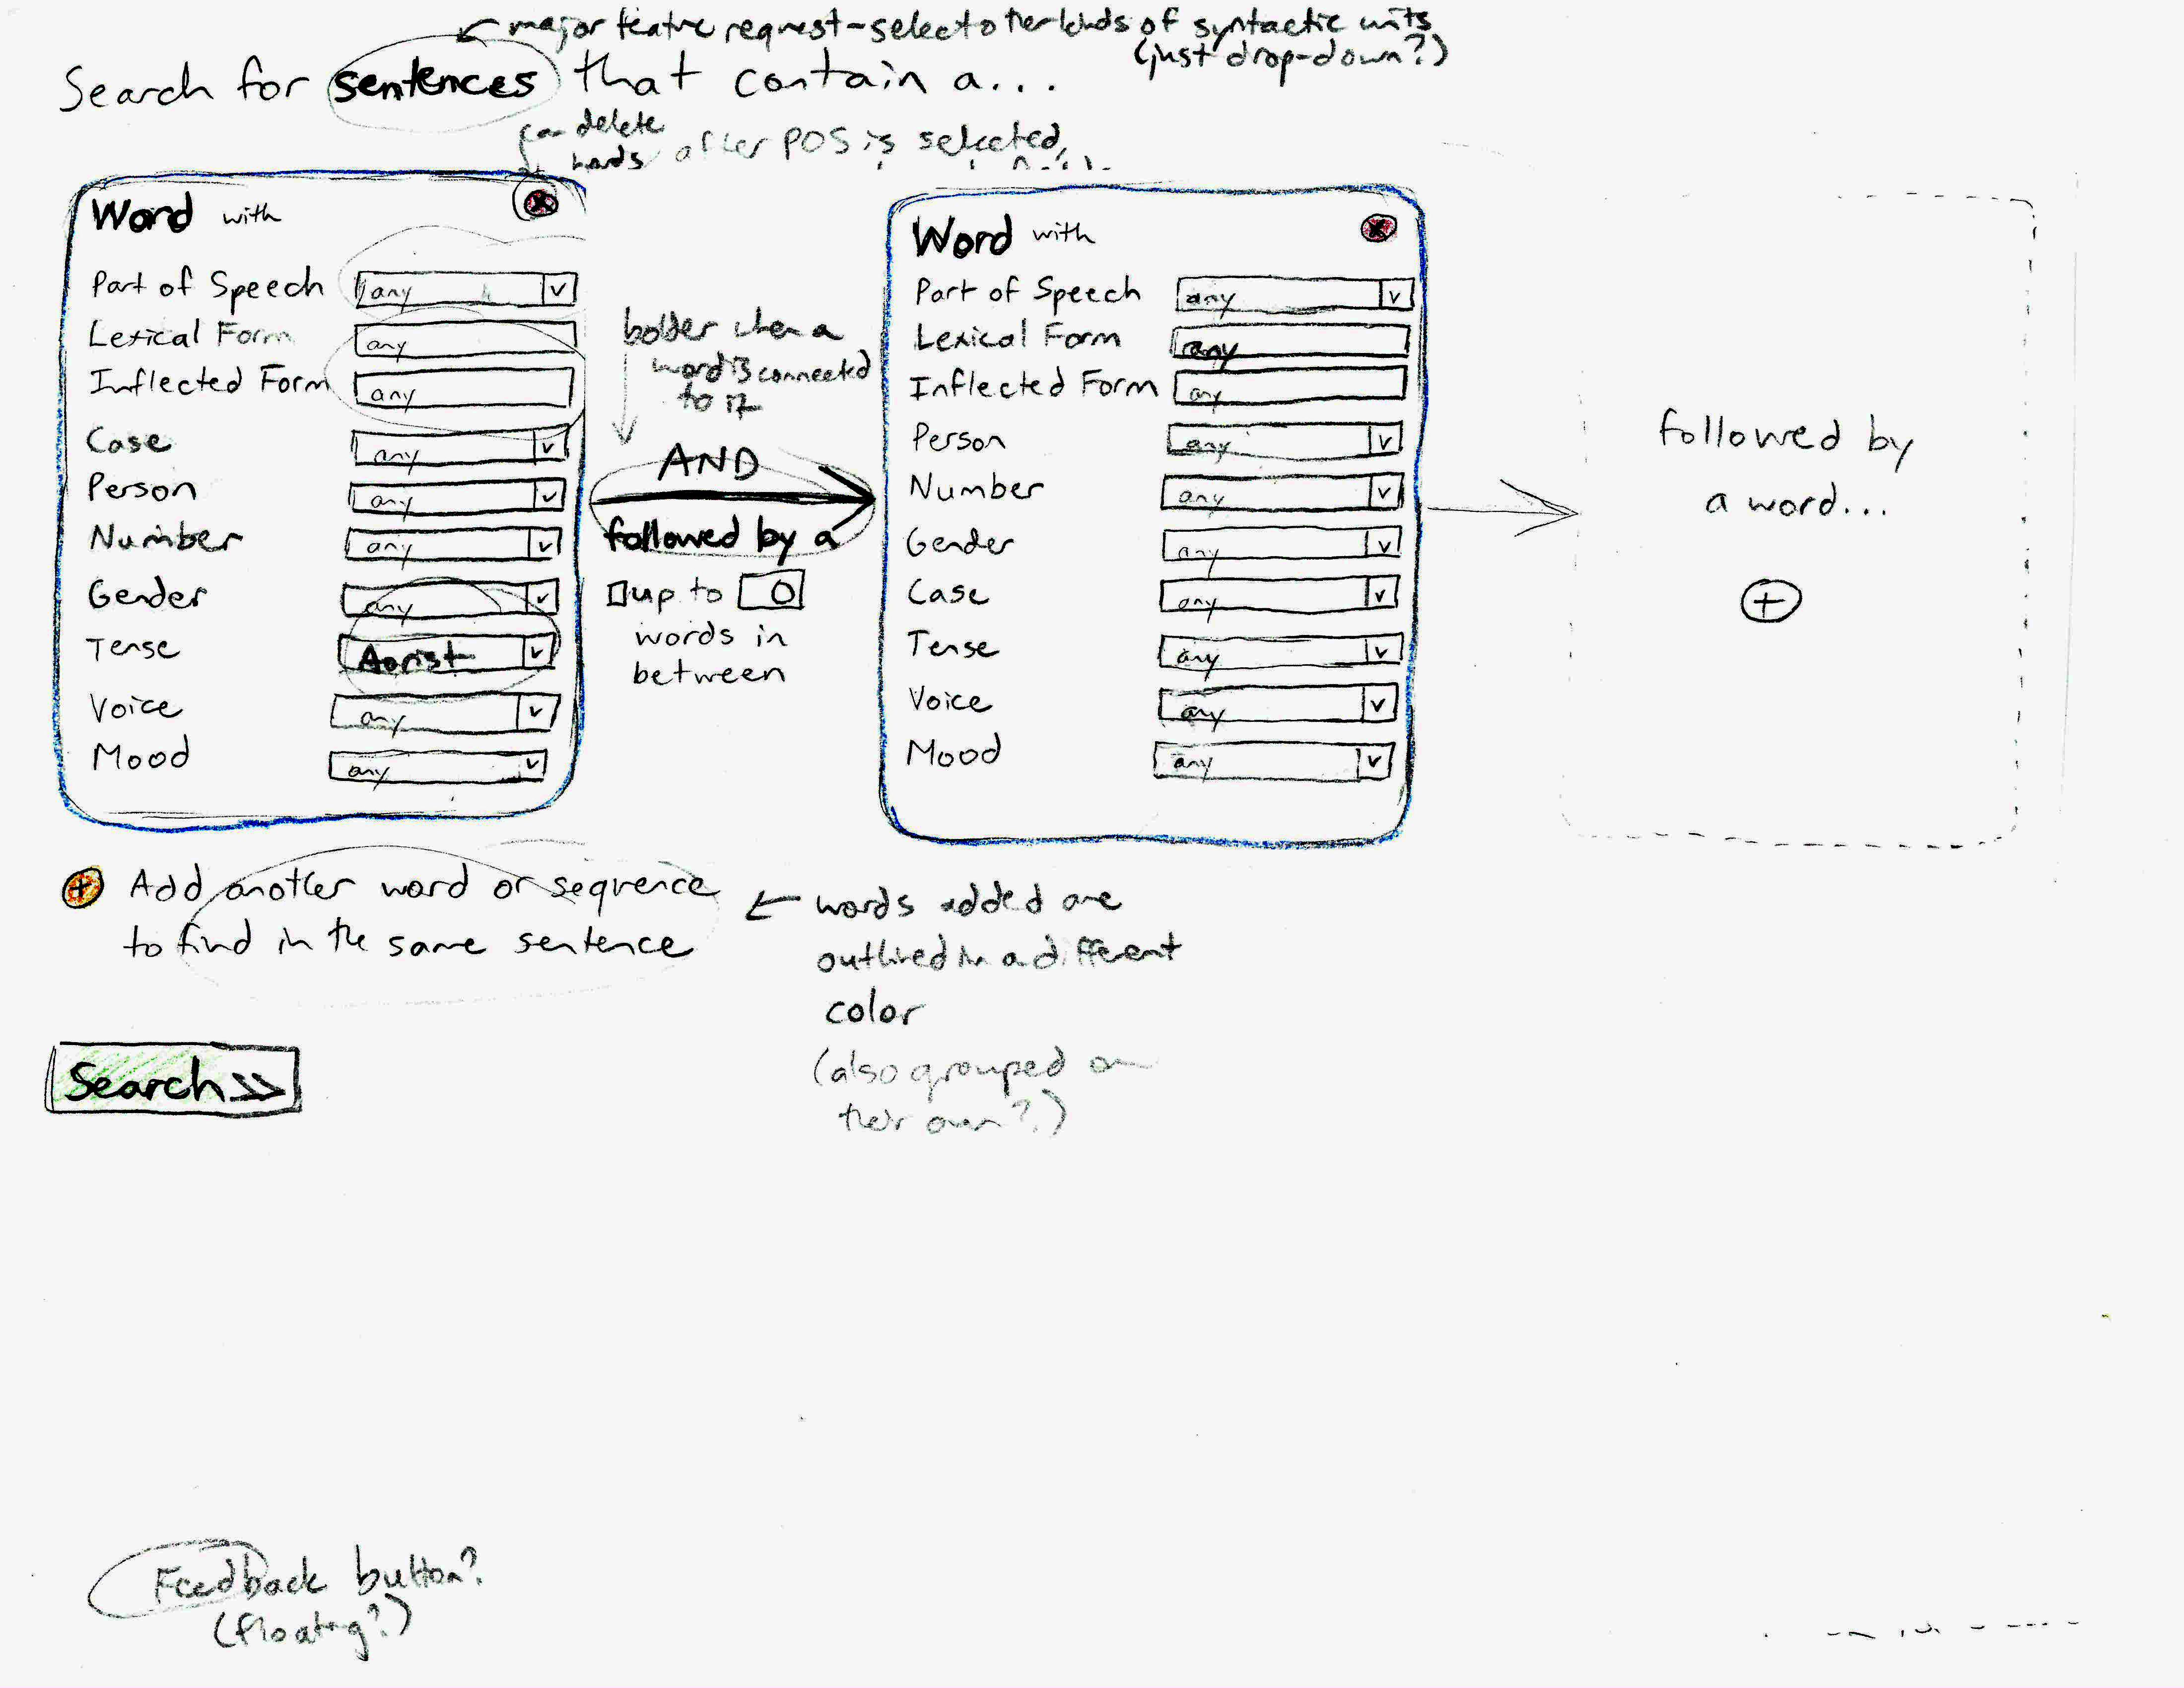 major feature request - select other kinds of syntactic units
(just drop-down?)
Search for sentences that contain a...
can delete
words
after POS is selected,
Word with
Part of Speech any
Lexical Form any
Inflected Form any
Case any
Person any
Number any
Gender any
Tense Aorist
Voice any
Mood any
bolder when a
word is connected
to it
AND
followed by a
up to 0
words in
between
Word with
Part of Speech any
Lexical Form any
Inflected Form any
Person any
Number any
Gender any
Case any
Tense any
Voice any
Mood any
followed by
a word...
+
+ Add another word or sequence
to find in the same sentence
words added are
outlined in a different
color
(also grouped on
their own?)
Search >>
Feedback button?
(floating?)